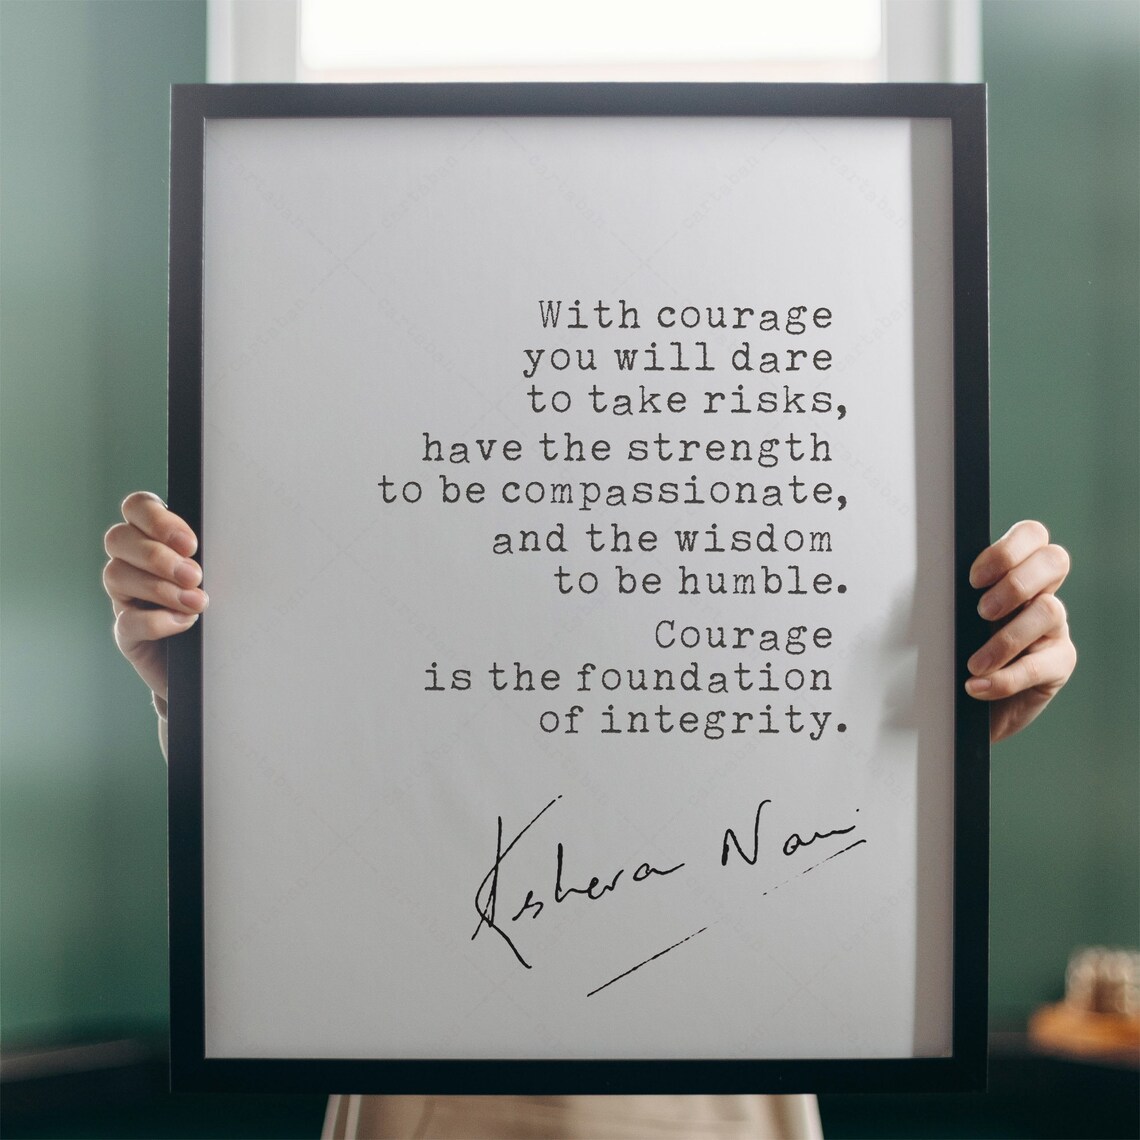 With courage
you will dare
to take risks,
have the strength
to be compassionate,
and the wisdom
to be humble.
Courage
is the foundation
of integrity.
Keshavan Nair